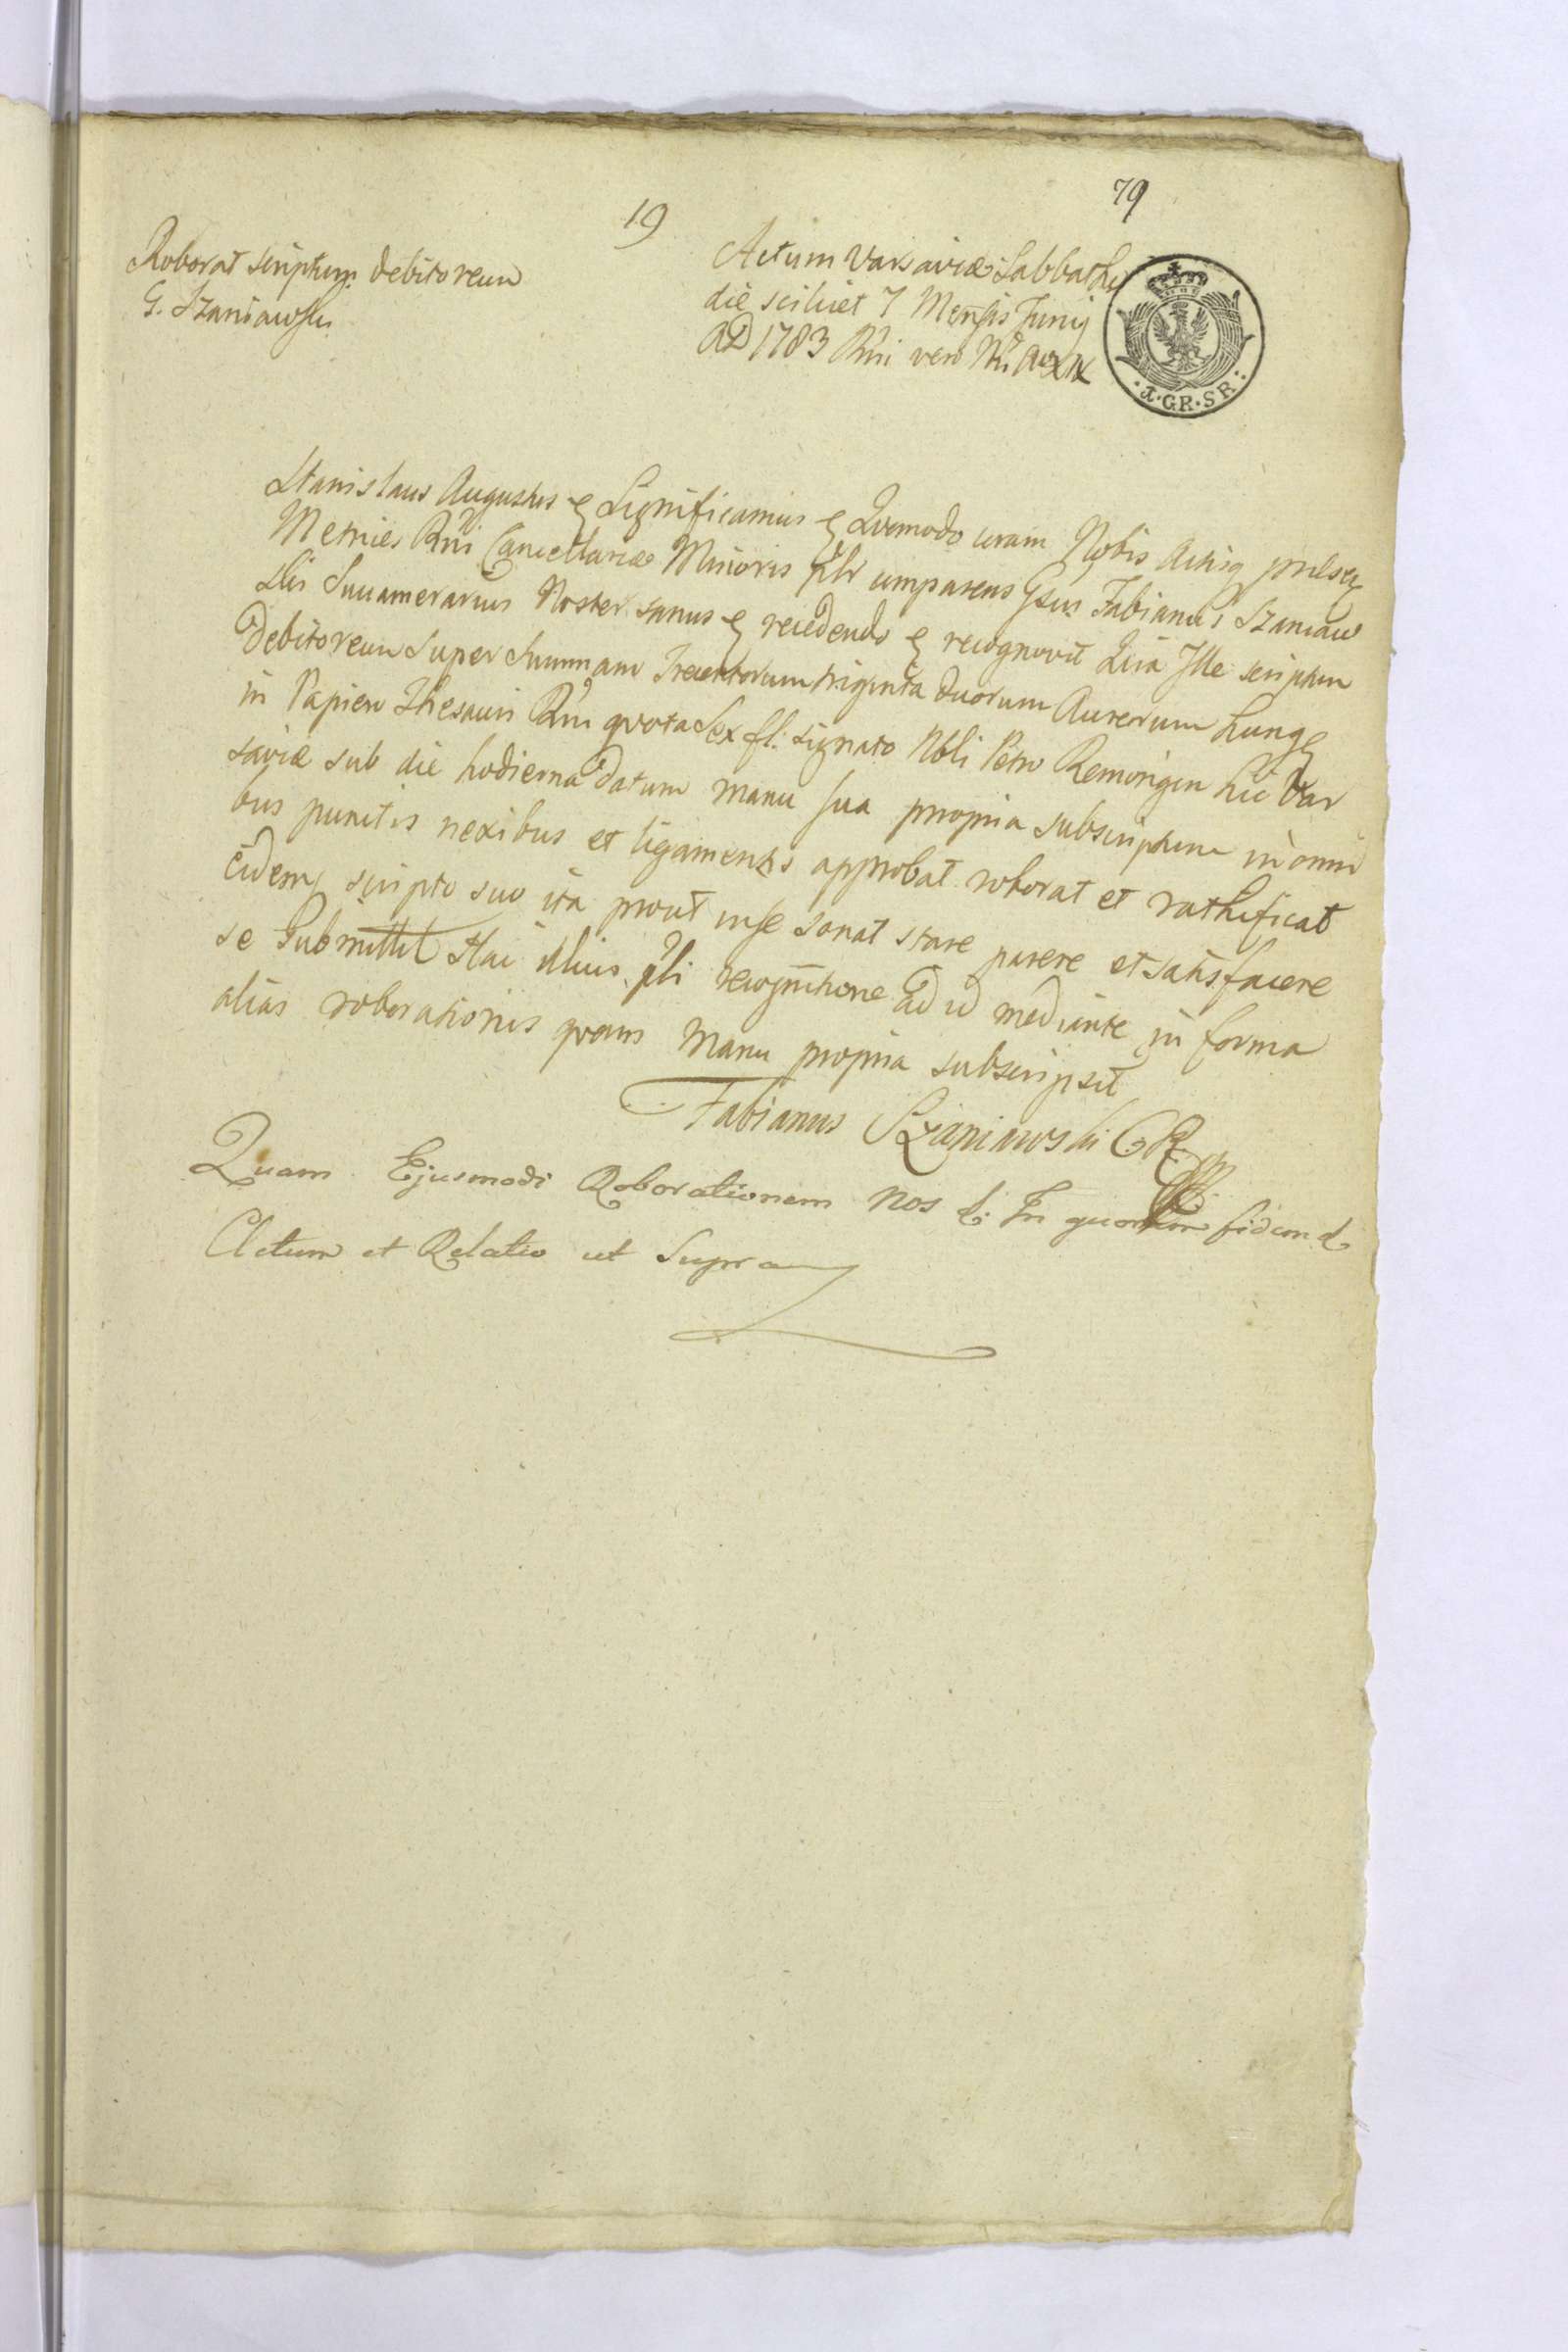 79
19
Roborat scriptum debitoreum
G. Szaniawski
Actum Varsaviæ Sabbatho
die scilicet 7 Mensis Junij
AD 1783 Rni vero Nri A° XIX
1·GR·SR:
Stanislaus Augustus & Significamus & Quomodo coram Nobis Actisq pntbsq
Metrices Rni Cancellariæ Minoris plr comparens Gsus Fabianus Szaniaw
ski Succamerarius Noster sanus & recedendo & recognovit Quia Ille scriptum
Debitoreum Super Summam Trecentorum triginta duorum Aureorum Hung
in Papiero Thesauri Rni quota Sex fl: signato Nbli Petro Remorigen hic Var
saviæ sub die hodierna datum manu sua propria subscriptum in omni
bus punctis nexibus et ligamentis approbat roborat et rathificat
eidemq scripto suo ita prout in se sonat stare parere et satisfacere
se Submittit Hac illius pli recognitione ad id mediante in forma
alias roborationis quam manu propria subscripsit
Fabianus Szaniawski
Quam Ejusmodi Roborationem Nos &. In quorum fidem &
Actum et Relatio ut Supra